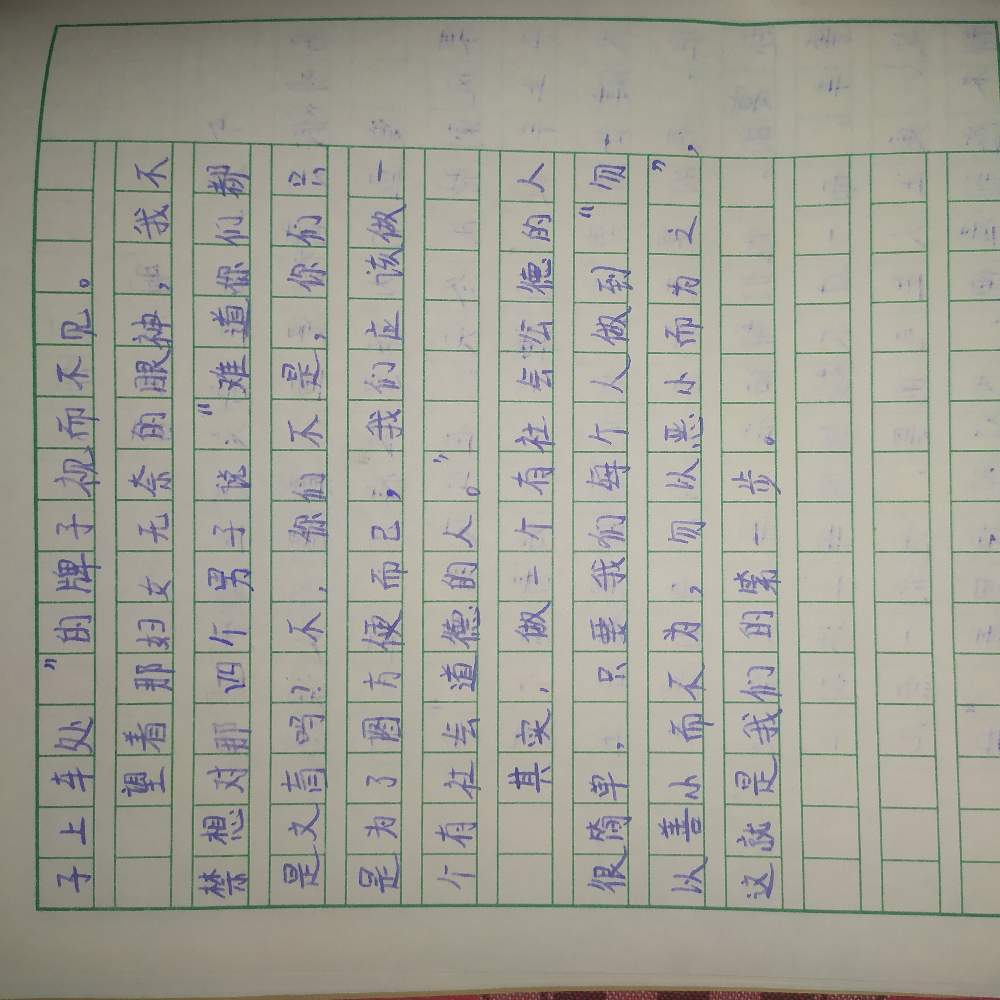 子上车处”的牌子视而不见。
望着那妇女无奈的眼神，我不
禁想对那四个男子说：“难道你们都
是文盲吗？不，你们不是，你们只
是为了图方便而已，我们应该做一
个有社会道德的人。”
其实，做一个有社会公德的人
很简单，只要我们每个人做到“勿
以善小而不为，勿以恶小而为之”，
这就是我们的第一步。